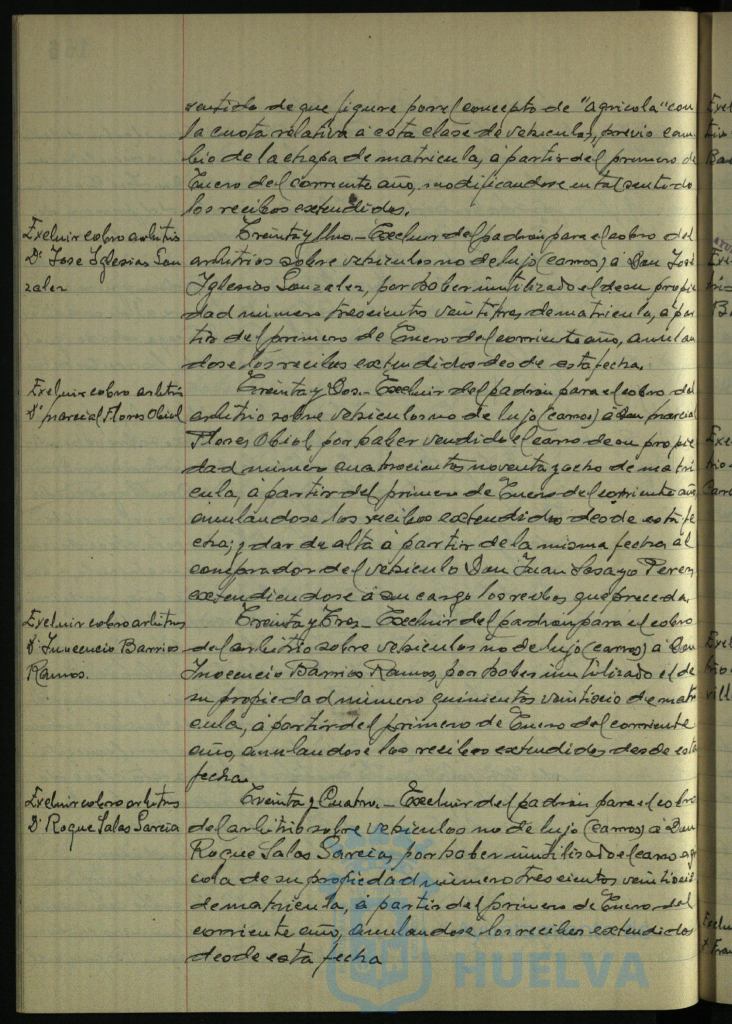 sentido de que figure por el concepto de "Agricola" con
la cuota relativa a esta clase de vehiculos, previo cam
bio de la chapa de matricula, á partir del primero de
Enero del corriente año, modificandose en tal sentido
los recibos extendidos.
Excluir cobro arbitrio
Dn Jose Iglesias Gon
zalez
Treinta y Uno.- Excluir del padron para el cobro del
arbitrios sobre vehiculos no de lujo (carros) á Don José
Iglesias Gonzalez, por haber inutilizado el de su propie
dad número trescientos veintitres, de matricula, á par
tir del primero de Enero del corriente año, anulan
dose los recibos extendidos desde esta fecha.
Excluir cobro arbitrio
Dn Marcial Flores Obiol
Treinta y Dos.- Excluir del padron para el cobro del
arbitrio sobre vehiculos no de lujo (carros) á Don Marcial
Flores Obiol, por haber vendido el carro de su propie
dad número cuatrocientos noventa y ocho de matri
cula, á partir del primero de Enero del corriente año
anulandose los recibos extendidos desde esta fe
cha; y dar de alta á partir de la misma fecha al
comprador del vehiculo Don Juan Perez
extendiendose á su cargo los recibos que preceda.
Excluir cobro arbitrios
Dn Inocencio Barrios
Ramos.
Treinta y Tres.- Excluir del padron para el cobro
del arbitrio sobre vehiculos no de lujo (carros) á Don
Inocencio Barrios Ramos, por haber inutilizado el de
su propiedad número quinientos de matri
cula, á partir del primero de Enero del corriente
año, anulandose los recibos extendidos desde esta
fecha.
Excluir cobro arbitrios
Dn Roque Salas Garcia
Treinta y Cuatro.- Excluir del padron para el cobro
del arbitrio sobre vehiculos no de lujo (carros) á Don
Roque Salas Garcia, por haber inutilizado el carro agri
cola de su propiedad número trescientos
de matricula, á partir del primero de Enero del
corriente año, anulandose los recibos extendidos
desde esta fecha
HUELVA